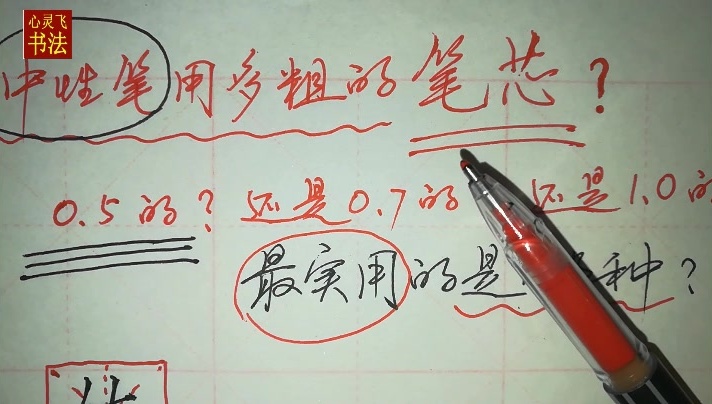 心灵飞
书法
中性笔用多粗的笔芯?
0.5的?还是0.7的 还是1.0的
最实用的是 种?